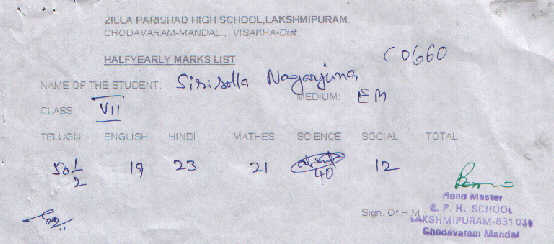 ZILLA PARISHAD HIGH SCHOOL,LAKSHMIPURAM,
CHODAVARAM-MANDAL, VISAKHA-Dist
HALFYEARLY MARKS LIST
C0660
NAME OF THE STUDENT: Sirisolla Nagarjuna
CLASS VII MEDIUM: EM
TELUGU ENGLISH HINDI MATHES SCIENCE SOCIAL TOTAL
50 1/2 19 23 21 40 12
Sign. Of H M
Head Master
Z. P. H. SCHOOL
LAKSHMIPURAM-531 031
Chodavaram Mandal